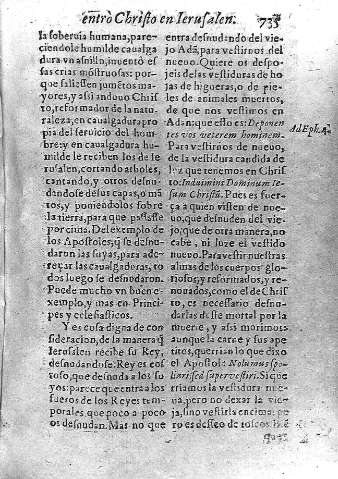 entrò Christo en Ierusalen. 735
la soberuia humana, pare-
ciendole humilde caualga
dura vn asnillo, inuentò es
sas crias mõstruosas: por-
que saliessen jumẽtos ma-
yores, y assi anduuo Chris
to, reformador de la natu-
raleza, en caualgadura pro
pia del seruicio del hom-
bre: y en caualgadura hu-
milde le reciben los de Ie
rusalen, cortando arboles,
cantando, y otros desnu-
dandose de sus capas, o mã
tos, y poniendolos sobre
la tierra, para que passasse
por cima. Del exemplo de
los Apostoles, q̃ se desnu-
daron las suyas, para ade-
reçar las caualgaduras, to
dos luego se desnudaron.
Puede mucho vn buen e-
xemplo, y mas en Princi-
pes y eclesiasticos.
Y es cosa digna de con
sideracion, de la manera q̃
Ierusalen recibe su Rey,
desnudandose: Rey es cos
toso, que desnuda a los su
yos: parece que entra a los
fueros de los Reyes tem-
porales que poco a poco
os desnudan. Mas no que
entra desnudando del vie-
jo Adã, para vestirnos del
nueuo. Quiere os despo-
jeis de las vestiduras de ho
jas de higueras, o de pie-
les de animales muertos,
de que nos vestimos en
Adan: que esso es: Deponen
tes vos veterem hominem.
Para vestirnos de nueuo,
de la vestidura candida de
luz que tenemos en Chris
to: Induimini Dominum Ie-
sum Christũ. Pues es fuer-
ça a quien visten de nue-
uo, que desnuden del vie-
jo, que de otra manera, no
cabe, ni luze el vestido
nueuo. Para vestir nuestras
almas de los cuerpos glo-
riosos, y reformados, y re-
nouados, como el de Chris
to, es necessario desnu-
darlas deste mortal por la
muerte, y assi morimos:
aunque la carne y sus ape
titos, querrian lo que dixo
el Apostol: Nolumus spo-
liari sed superuestiri. Si que
rriamos la vestidura nue-
ua, pero no dexar la vie-
ja, sino vestirla encima: pe
ro es desseo de toscos hõ
Ad Eph. 4.